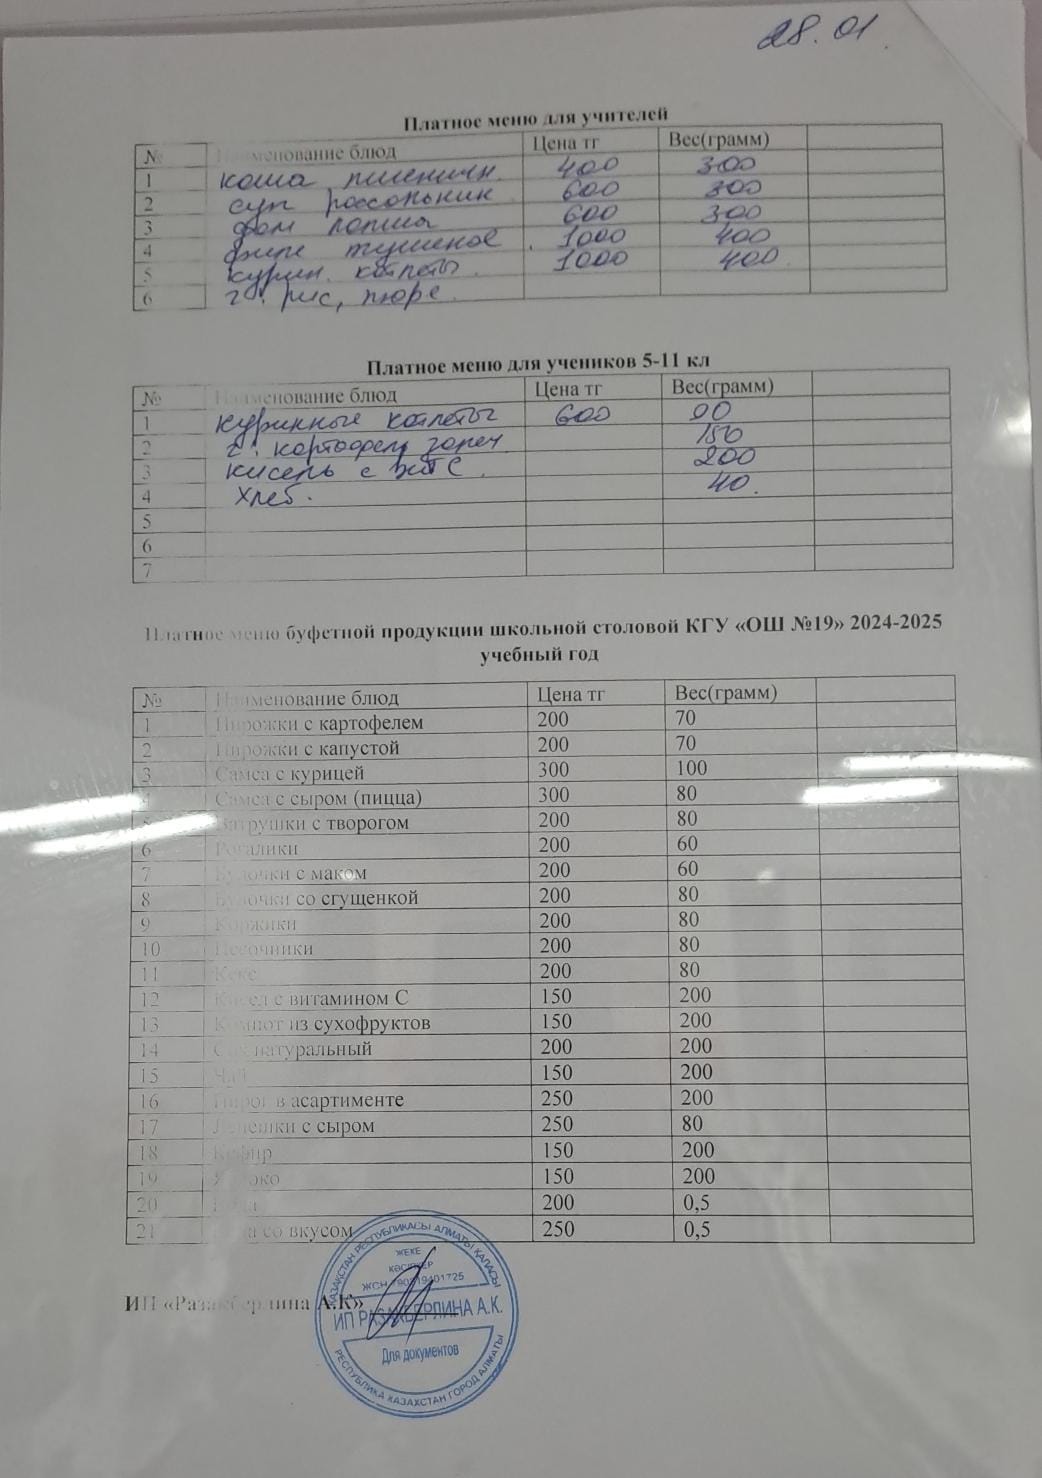 28.01
Платное меню для учителей
№ Наименование блюд Цена тг Вес(грамм)
1 каша пшеничн 400 300
2 суп рассольник 600 300
3 фам лапша 600 300
4 филе тушеное 1000 400
5 курин. котлеты 1000 400
6 г. рис, пюре
Платное меню для учеников 5-11 кл
№ Наименование блюд Цена тг Вес(грамм)
1 куринные котлеты 600 90
2 г. картофель 150
3 кисель с вит С 200
4 хлеб. 40
5
6
7
Платное меню буфетной продукции школьной столовой КГУ «ОШ №19» 2024-2025
учебный год
№ Наименование блюд Цена тг Вес(грамм)
1 Пирожки с картофелем 200 70
2 Пирожки с капустой 200 70
3 Самса с курицей 300 100
4 Самса с сыром (пицца) 300 80
5 Ватрушки с творогом 200 80
6 Рогалики 200 60
7 Булочки с маком 200 60
8 Булочки со сгущенкой 200 80
9 Коржики 200 80
10 Песочники 200 80
11 Кекс 200 80
12 Кисел с витамином С 150 200
13 Компот из сухофруктов 150 200
14 Сок натуральный 200 200
15 Чай 150 200
16 Пирог в асартименте 250 200
17 Лепешки с сыром 250 80
18 Кефир 150 200
19 150 200
20 Вода 200 0,5
21 Вода со вкусом 250 0,5
ИП «Разакберлина А.К»
ҚАЗАҚСТАН РЕСПУБЛИКАСЫ АЛМАТЫ ҚАЛАСЫ
ЖЕКЕ
КӘСІПКЕР
ЖСН
ИП РАЗАКБЕРЛИНА А.К.
Для документов
РЕСПУБЛИКА КАЗАХСТАН ГОРОД АЛМАТЫ